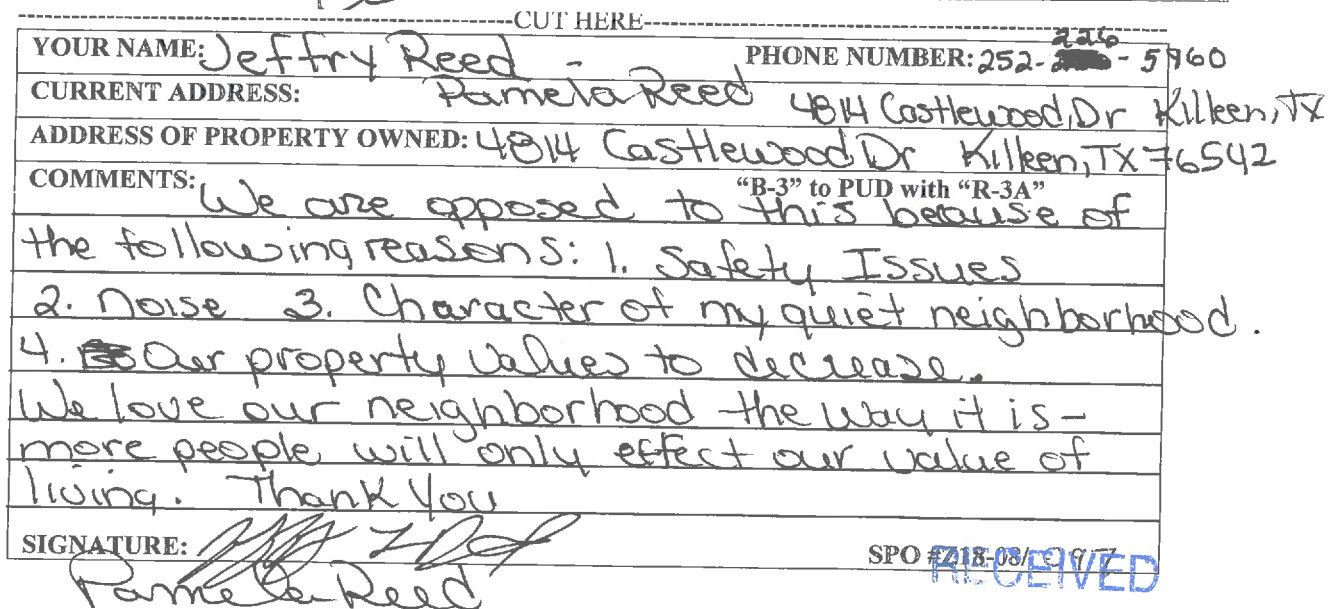 CUT HERE
YOUR NAME: Jeffry Reed - PHONE NUMBER: 252-226-5960
CURRENT ADDRESS: Pamela Reed 4814 Castlewood Dr Killeen, TX
ADDRESS OF PROPERTY OWNED: 4814 Castlewood Dr Killeen, TX 76542
COMMENTS: "B-3" to PUD with "R-3A"
We are opposed to this because of
the following reasons: 1. Safety Issues
2. Noise 3. Character of my quiet neighborhood.
4. Our property values to decrease.
We love our neighborhood the way it is -
more people will only effect our value of
living. Thank You
SIGNATURE: SPO #Z18-08/
RECEIVED
Pamela Reed